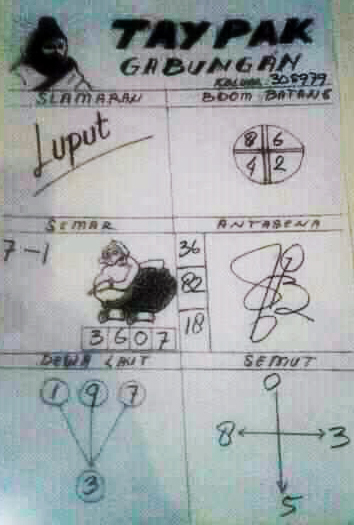 TAYPAK
GABUNGAN
KELUAR 305979
SLAMARAN
BOOM BATANG
Luput
8 6
4 2
SEMAR
ANTASENA
7-1
36
82
18
3 6 0 7
DEWA LAUT
SEMUT
1 9 7
3
0
8 3
5